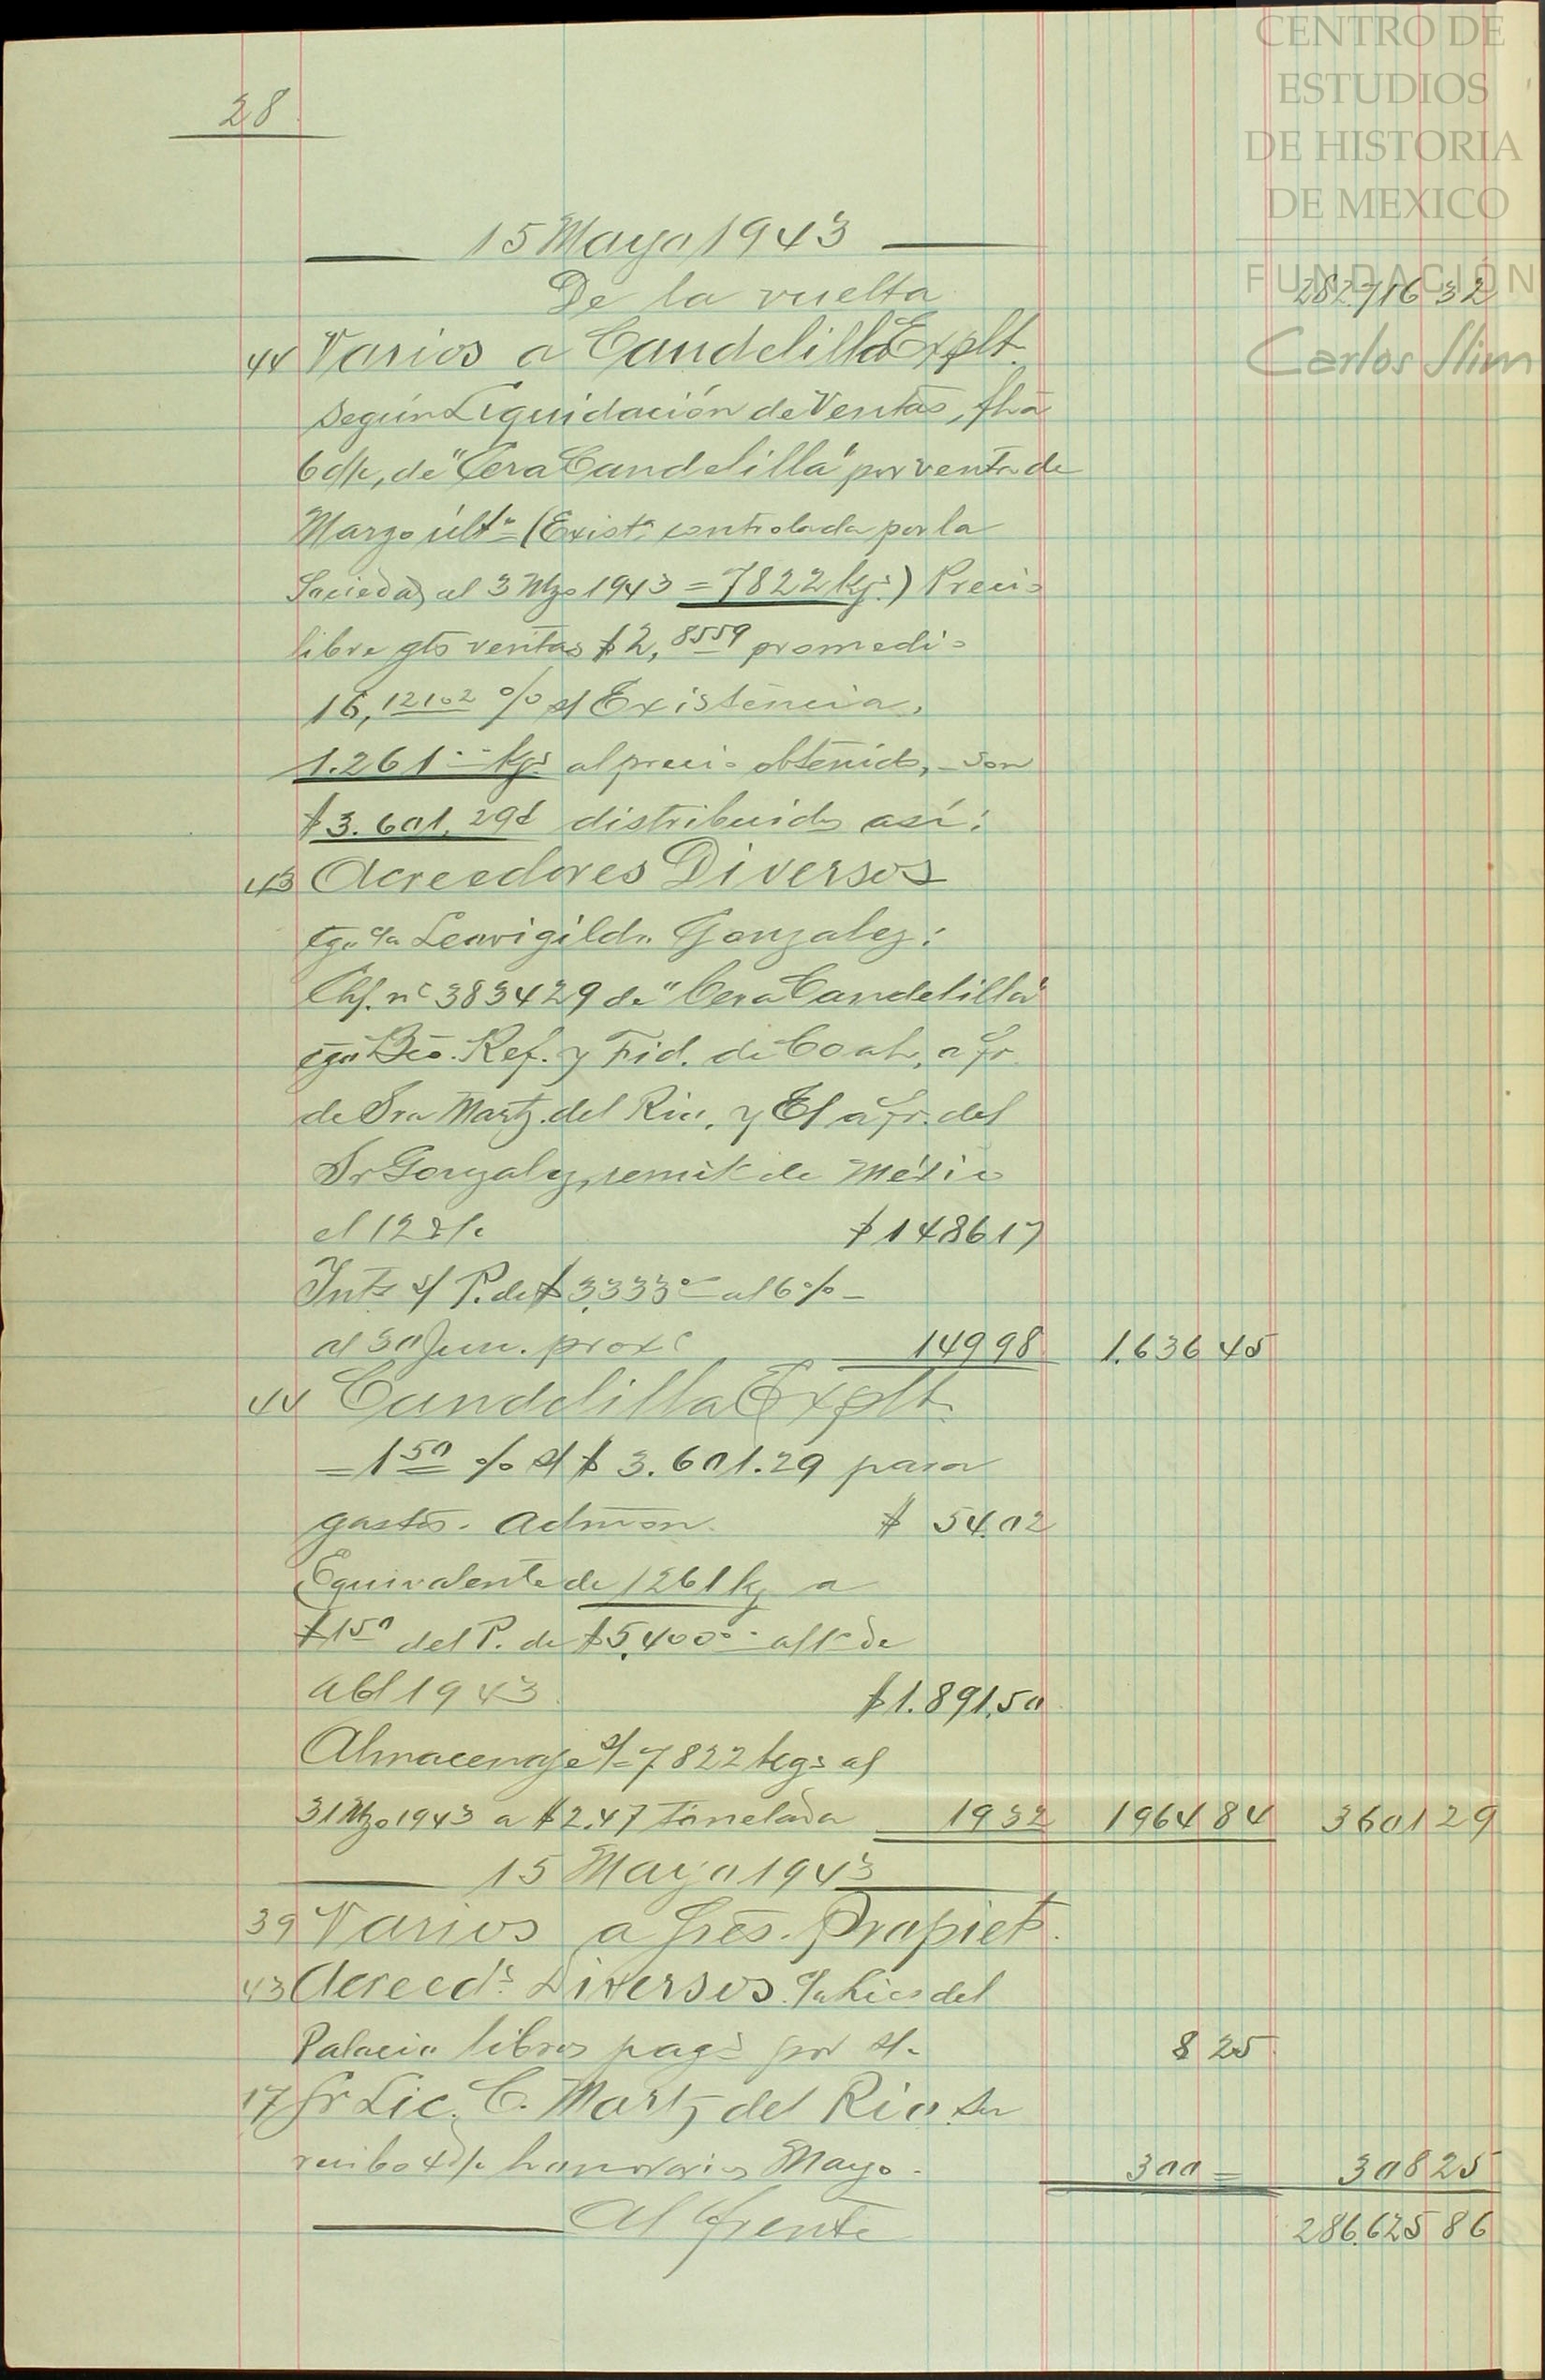 CENTRO DE
ESTUDIOS
DE HISTORIA
DE MEXICO
FUNDACIÓN
Carlos Slim
28
15 Mayo 1943
De la vuelta 282.716 32
44 Varios a Candelilla Explt.
según Liquidación de Ventas, fha
6 d/c, de "Cera Candelilla" por venta de
Marzo últº (Existª controlada por la
Sociedad al 3 Mzo 1943 = 7822 kgs.) Precio
libre gtos ventas $2,8559 promedio
16,12102 % s/ Existencia,
1.261 kgs al precio obtenido, - son
$3.601,29 distribuidos así:
43 Acreedores Diversos
cgo c/a Leovigildo Gonzalez:
Chq. nº 383429 de "Cera Candelilla"
cgo Bco. Ref. y Fid. de Coah, a fr.
de Sra Martz. del Rio, y El a fr. del
Sr Gonzalez, remit de Méxio
el 12 d/c $148617
Ints s/ P. de $3,333 al 6% -
al 30 Jun. proxº 14998 1.636 45
44 Candelilla Explt.
= 1 50 % s/ $ 3.601.29 para
gastos. admon. $ 54.02
Equivalente de 1261 kg a
$1 50 del P. de $5,400 al 1º de
Abl 1943. $1.891,50
Almacenaje s/ 7822 kgs al
31 Mzo 1943 a $2.47 tonelada 1932 1964 84 3601 29
15 Mayo 1943
39 Varios a Sres. Propiets.
43 Acreeds Diversos. c/a Lic del
Palacio libros pags por s/c 8 25
17 Sr Lic. C. Martz del Rio su
recibo 4 d/c honorarios Mayo. 300 = 308 25
Al frente 286.625 86